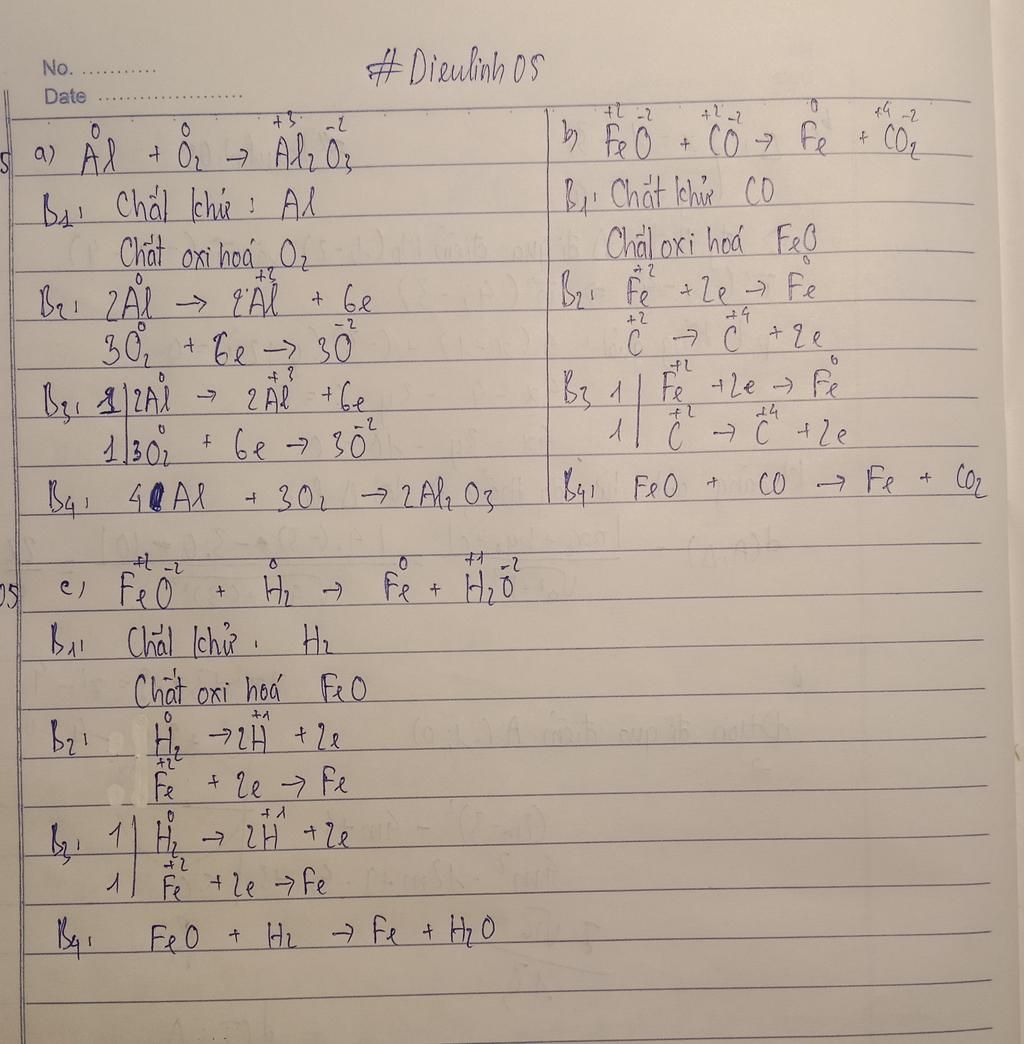 No. ...........
Date ........................
# Dieulinh 05
5 a) Al⁰ + O₂⁰ → Al₂⁺³O₃⁻²
B1: Chất khử : Al
Chất oxi hoá O₂
B2: 2Al⁰ → 2Al⁺² + 6e
3O₂⁰ + 6e → 3O⁻²
B3: 1 | 2Al⁰ → 2Al⁺³ + 6e
1 | 3O₂⁰ + 6e → 3O⁻²
B4: 4Al + 3O₂ → 2Al₂O₃
b) Fe⁺²O⁻² + C⁺²O⁻² → Fe⁰ + C⁺⁴O₂⁻²
B1: Chất khử CO
Chất oxi hoá FeO
B2: Fe⁺² + 2e → Fe⁰
C⁺² → C⁺⁴ + 2e
B3 1 | Fe⁺² + 2e → Fe⁰
1 | C⁺² → C⁺⁴ + 2e
B4: FeO + CO → Fe + CO₂
05 c) Fe⁺²O⁻² + H₂⁰ → Fe⁰ + H₂⁺¹O⁻²
B1: Chất khử . H₂
Chất oxi hoá FeO
B2: H₂⁰ → 2H⁺¹ + 2e
Fe⁺² + 2e → Fe
B3: 1 | H₂⁰ → 2H⁺¹ + 2e
1 | Fe⁺² + 2e → Fe
B4: FeO + H₂ → Fe + H₂O